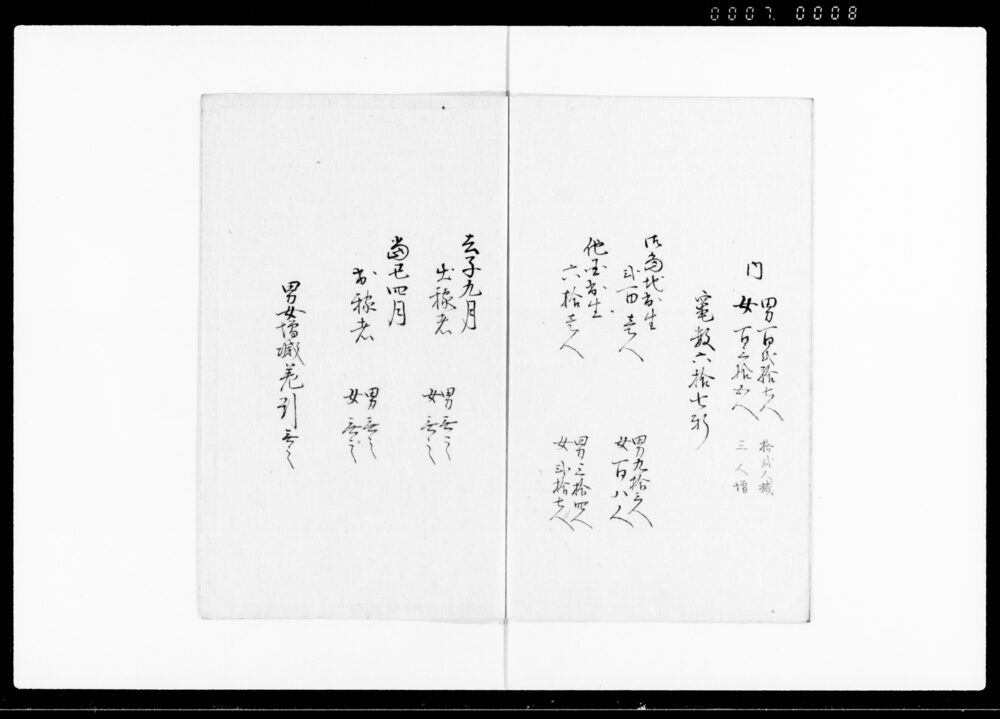 0007. 0008
内
男百弐拾七人 拾弐人減
女百三拾五人 三人増
竈数六拾七軒
御当地出生
弐百壱人
男九拾三人
女百八人
他国出生
六拾壱人
男三拾四人
女弐拾七人
去子九月
出稼者
男無之
女無之
當丑四月
出稼者
男無之
女無之
男女増減差引無之